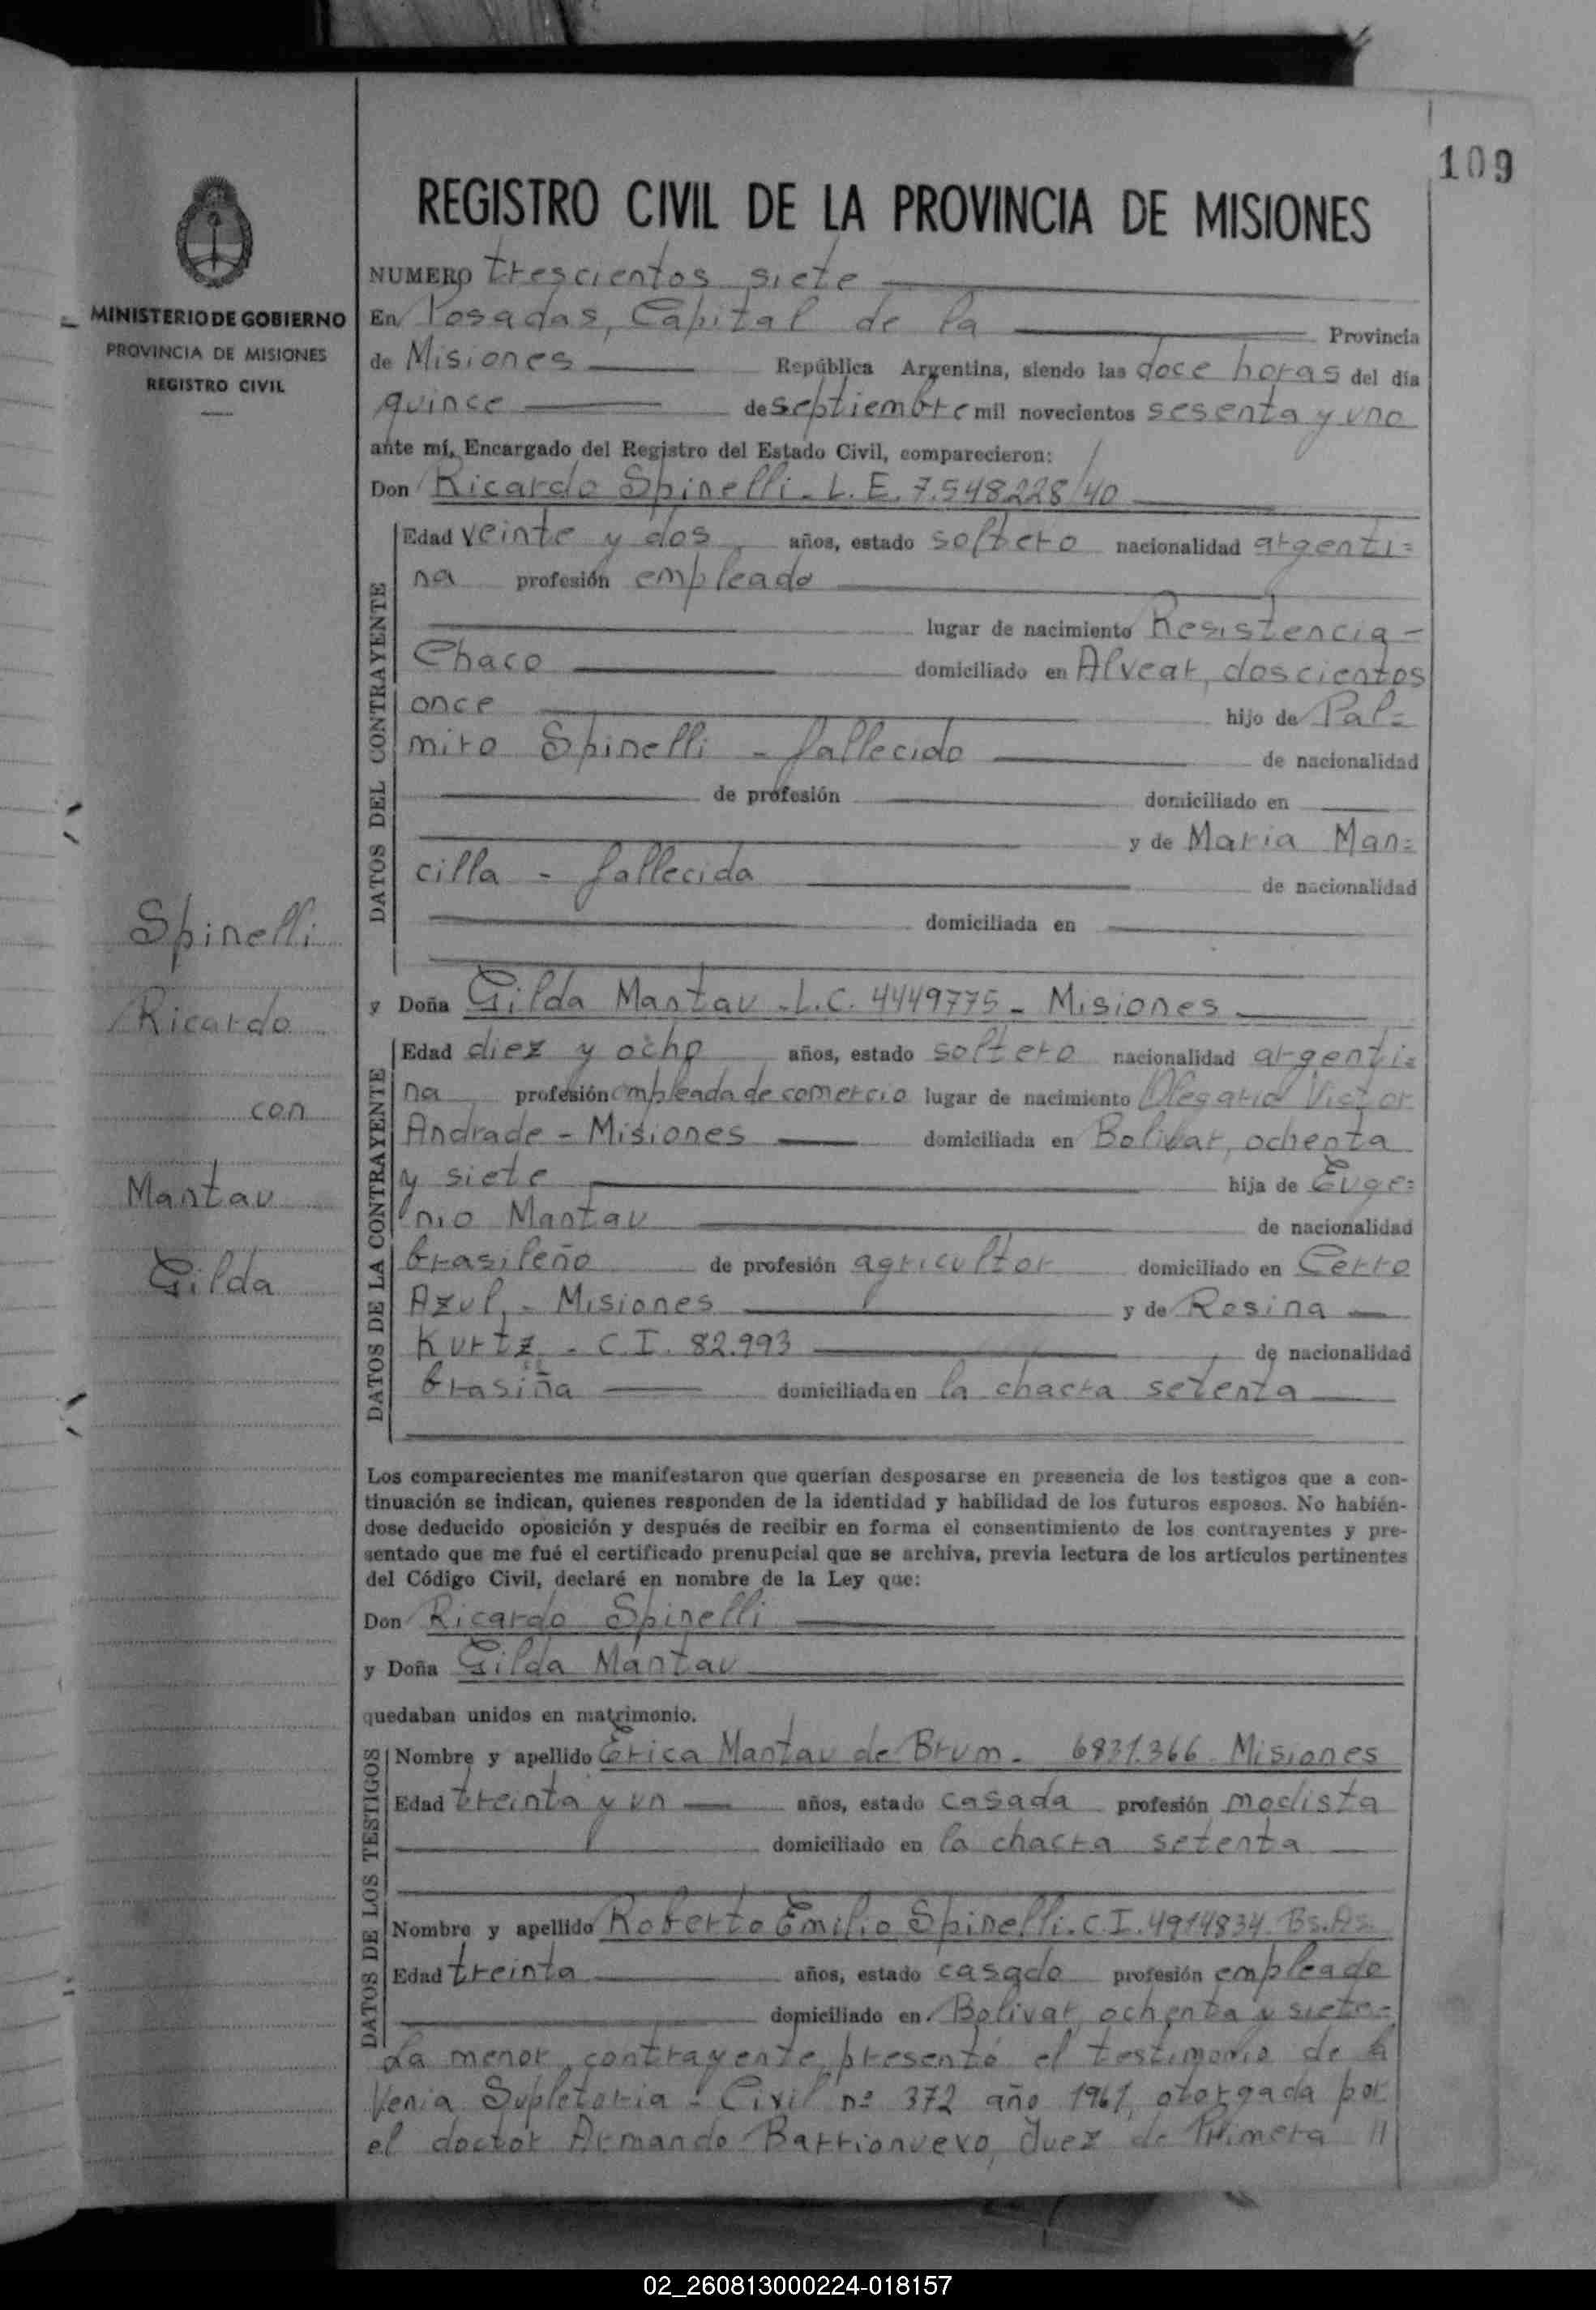 109
REGISTRO CIVIL DE LA PROVINCIA DE MISIONES
MINISTERIO DE GOBIERNO
PROVINCIA DE MISIONES
REGISTRO CIVIL
NUMERO trescientos siete
En Posadas, Capital de la Provincia
de Misiones República Argentina, siendo las doce horas del día
quince de septiembre mil novecientos sesenta y uno
ante mí, Encargado del Registro del Estado Civil, comparecieron:
Don Ricardo Spinelli - L. E. 7.548228/40
DATOS DEL CONTRAYENTE
Edad veinte y dos años, estado soltero nacionalidad argenti=
na profesión empleado
lugar de nacimiento Resistencia -
Chaco domiciliado en Alvear, doscientos
once hijo de Pal=
miro Spinelli - fallecido de nacionalidad
de profesión domiciliado en
y de Maria Man=
cilla - fallecida de nacionalidad
domiciliada en
Spinelli
Ricardo
con
Mantau
Gilda
y Doña Gilda Mantau - L.C. 4449775 - Misiones
DATOS DE LA CONTRAYENTE
Edad diez y ocho años, estado soltero nacionalidad argenti=
na profesión empleada de comercio lugar de nacimiento Olegario Victor
Andrade - Misiones domiciliada en Bolivar, ochenta
y siete hija de Euge=
nio Mantau de nacionalidad
brasileño de profesión agricultor domiciliado en Cerro
Azul, - Misiones y de Rosina
Kurtz - C. I. 82.993 de nacionalidad
brasiña domiciliada en la chacra setenta
Los comparecientes me manifestaron que querían desposarse en presencia de los testigos que a con-
tinuación se indican, quienes responden de la identidad y habilidad de los futuros esposos. No habién-
dose deducido oposición y después de recibir en forma el consentimiento de los contrayentes y pre-
sentado que me fué el certificado prenupcial que se archiva, previa lectura de los artículos pertinentes
del Código Civil, declaré en nombre de la Ley que:
Don Ricardo Spinelli
y Doña Gilda Mantau
quedaban unidos en matrimonio.
DATOS DE LOS TESTIGOS
Nombre y apellido Erica Mantau de Brum - 6831.366 Misiones
Edad treinta y un años, estado casada profesión modista
domiciliado en la chacra setenta
Nombre y apellido Roberto Emilio Spinelli. C. I. 4914834 Bs.As.
Edad treinta años, estado casado profesión empleado
domiciliado en Bolivar, ochenta y siete-
La menor contrayente presentó el testimonio de la
Venia Supletoria - Civil nº 372 año 1961, otorgada por
el doctor Armando Barrionuevo, Juez de Primera //
02_260813000224-018157